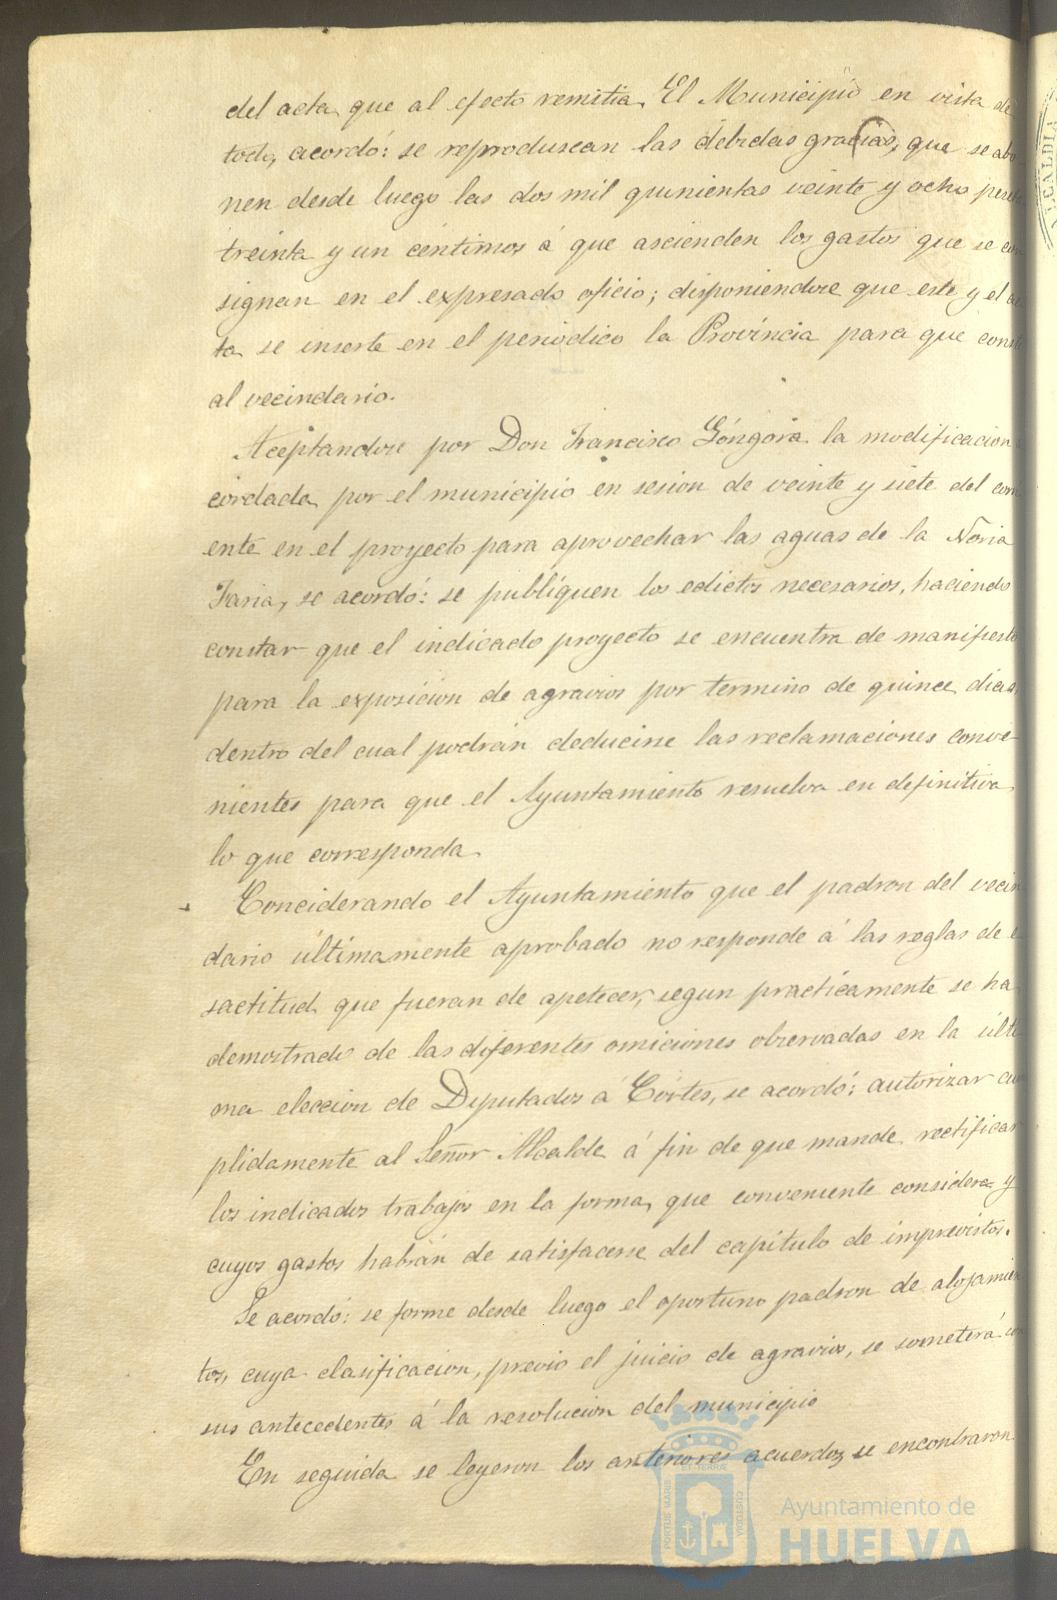 del acta que al efecto remitia. El Municipio en vista de
todo, acordó: se reproduscan las debidas gracias, que se abo-
nen desde luego las dos mil quinientas veinte y ocho pese
treinta y un céntimos á que ascienden los gastos que se con
signan en el expresado oficio; disponiendose que este y el ac
ta se inserte en el periódico la Provincia para que conste
al vecindario.
Aceptandose por Don Francisco Góngora la modificacion
cordada por el municipio en sesion de veinte y siete del corri
ente en el proyecto para aprovechar las aguas de la Noria
Faria, se acordó: se publiquen los edictos necesarios, haciendo
constar que el indicado proyecto se encuentra de manifiesto
para la exposicion de agravios por termino de quince dias,
dentro del cual podrán deducirse las reclamaciones conve-
nientes para que el Ayuntamiento resuelva en definitiva
lo que corresponda.
Conciderando el Ayuntamiento que el padron del vecin
dario últimamente aprobado no responde á las reglas de e
sactitud que fueran de apetecer, segun practicamente se ha
demostrado de las diferentes omiciones observadas en la últi
ma eleccion de Deputados á Córtes, se acordó: autorizar cum
plidamente al Señor Alcalde á fin de que mande rectificar
los indicados trabajos en la forma que conveniente considere y
cuyos gastos habrán de satisfacerse del capítulo de imprevistos.
Se acordó: se forme desde luego el oportuno padron de alojamien
tos, cuya clasificacion, previo el juicio de agravios, se someterá con
sus antecedentes á la resolucion del municipio
En seguida se leyeron los anteriores acuerdos, se encontraron
ALCALDIA
PORTUS MARIS
ET TERRÆ
CUSTODIA
Ayuntamiento de
HUELVA